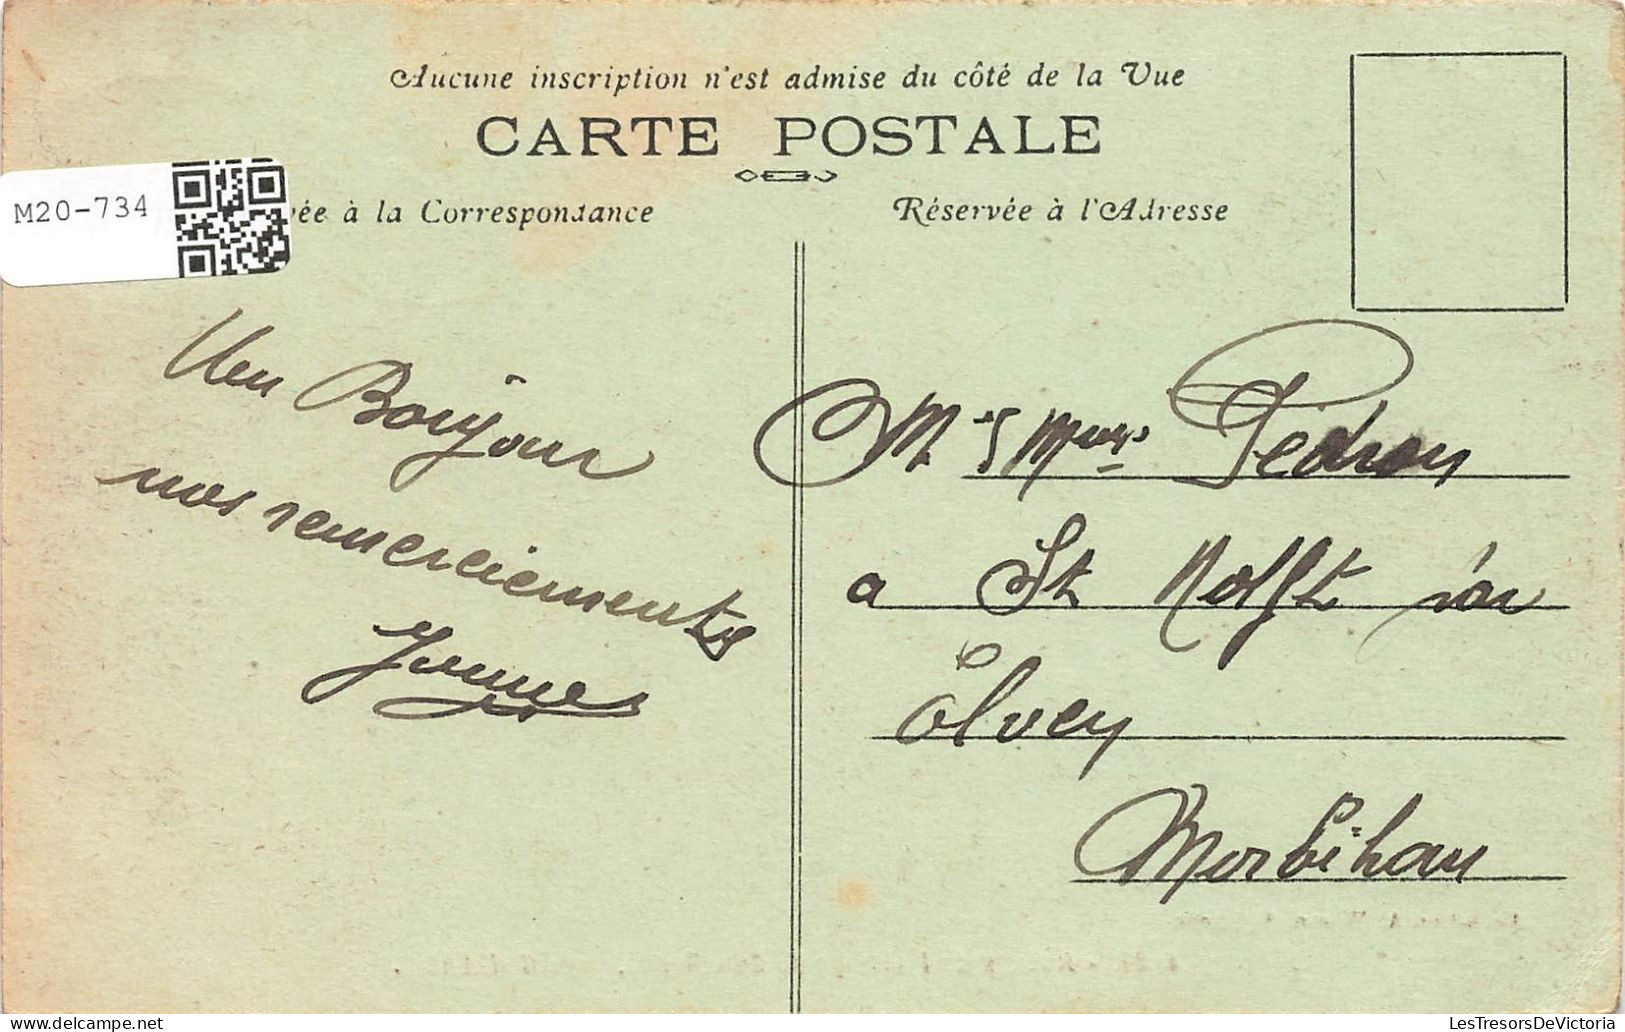 Aucune inscription n'est admise du côté de la Vue
CARTE POSTALE
M20-734
vée à la Correspondance
Réservée à l'Adresse
Un Bonjour
nos remerciements
Mr Mme Pédron
a St Nolff par
Elven
Morbihan
LesTresorsDeVictoria
delcampe.net